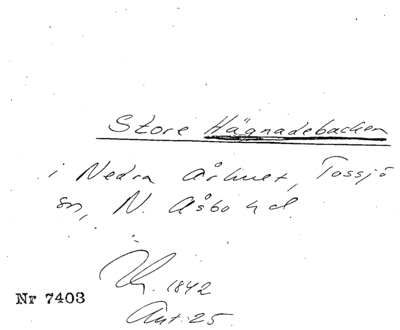 Store Hägnadebacken
i Nedra Århult, Tossjö
sn, N. Åsbo hd.
1842
Nr 7403
Ant. 25.